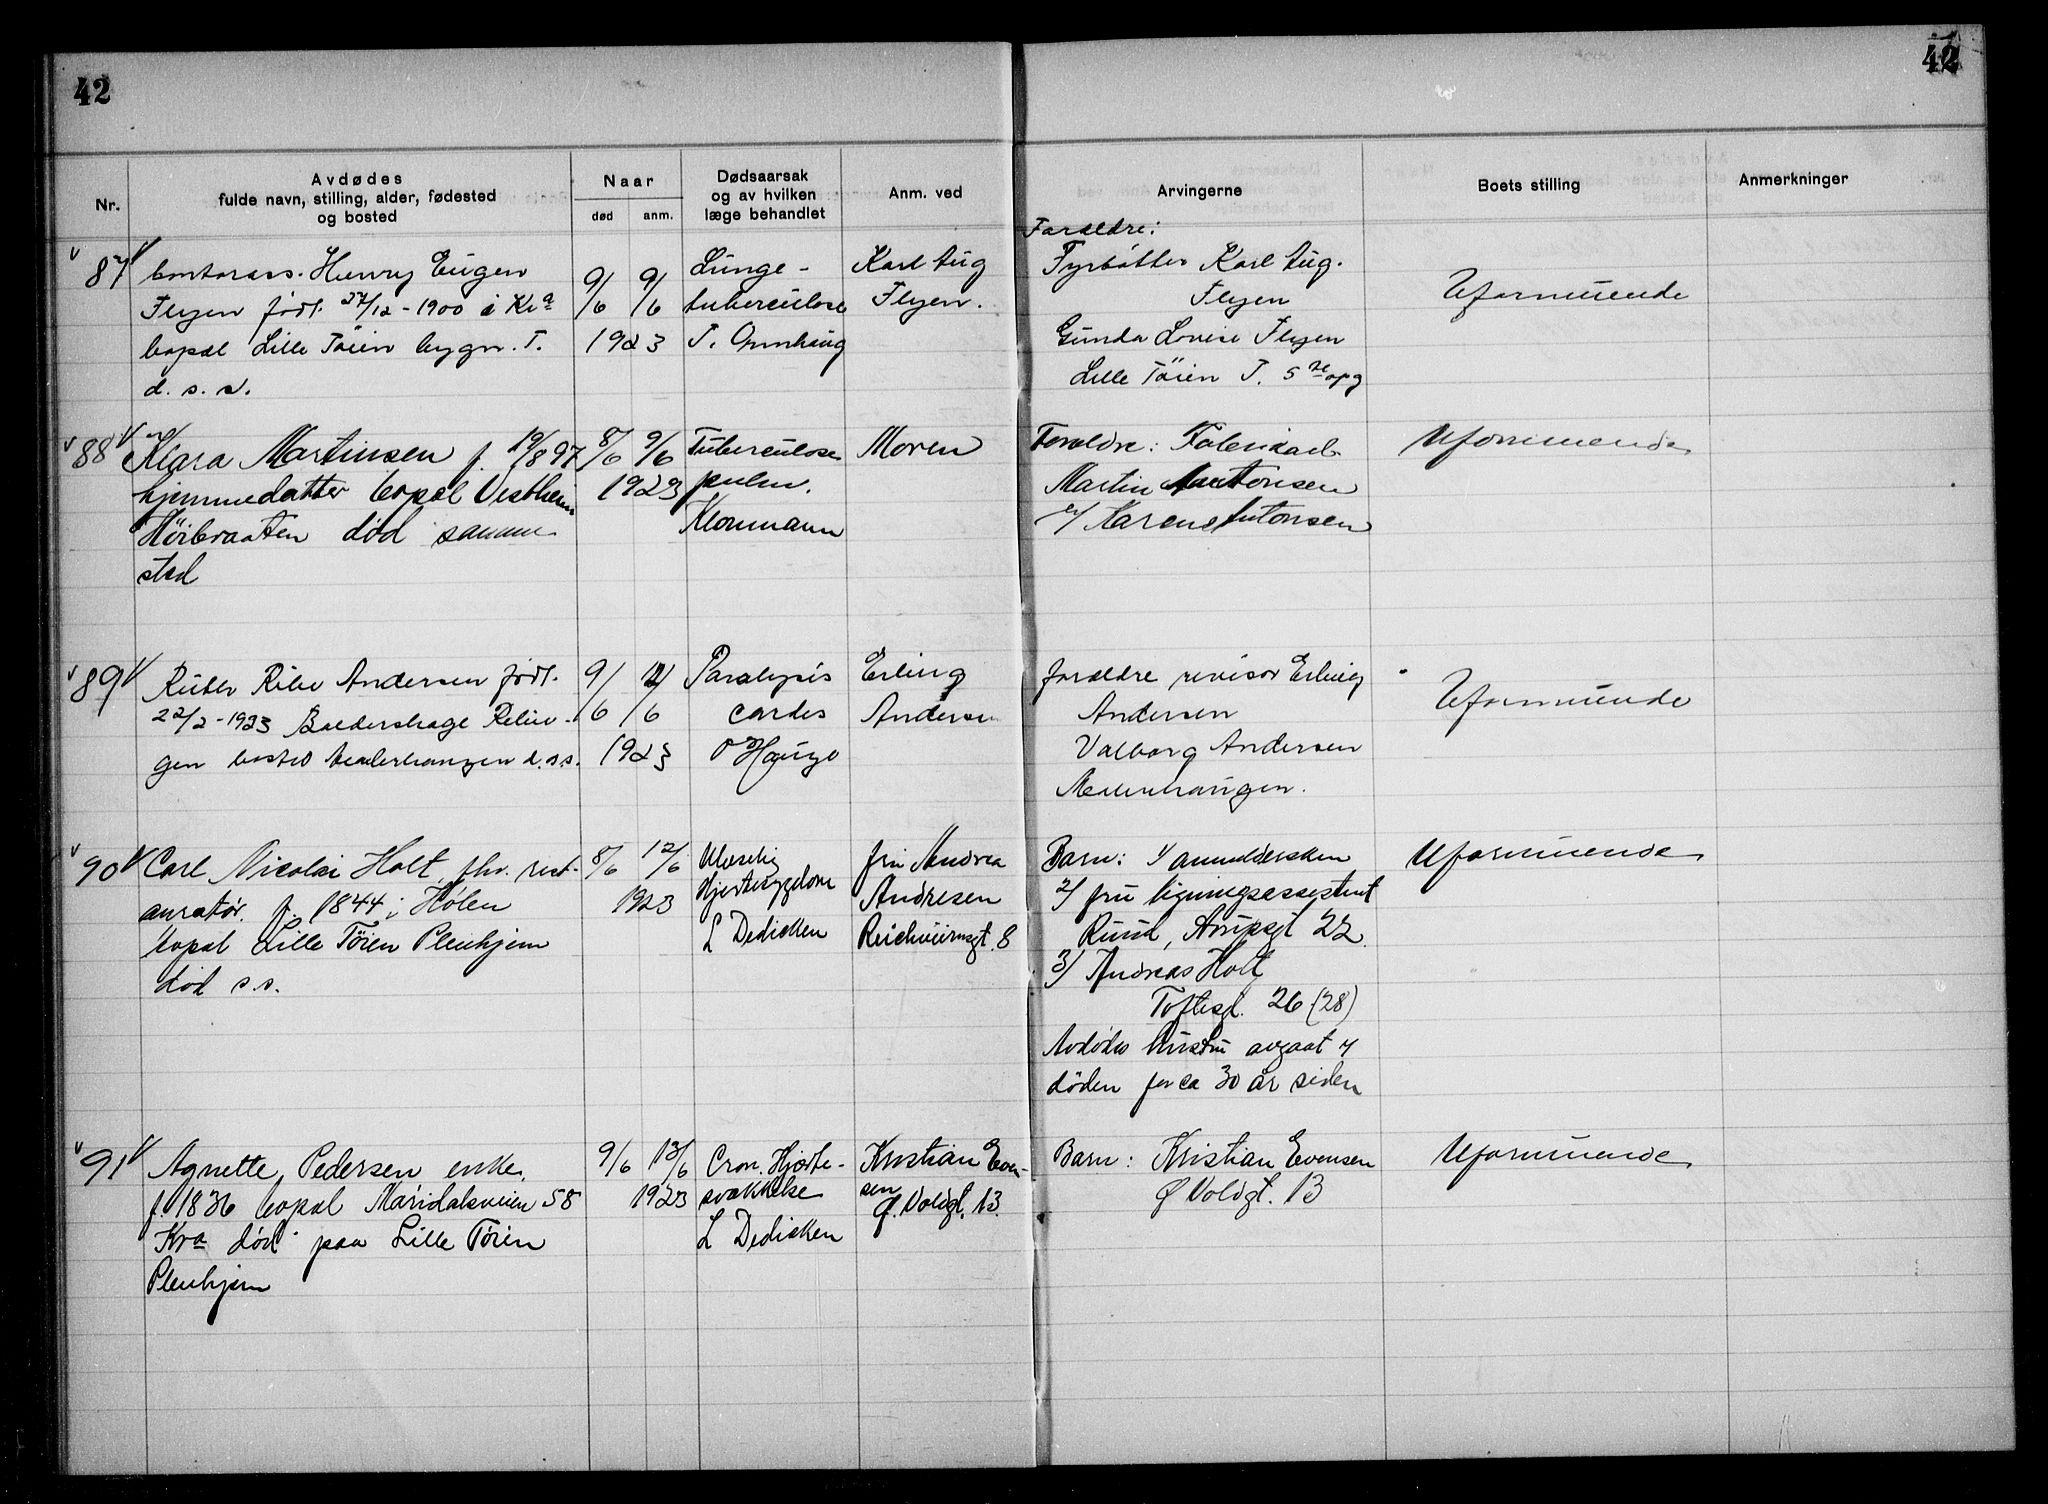 42
42
Nr.
Avdødes
fulde navn, stilling, alder, fødested
og bosted
Naar
død
anm.
Dødsaarsak
og av hvilken
læge behandlet
Anm. ved
Arvingerne
Boets stilling
Anmerkninger
87
Henry Eugen
Flyen født 27/12-1900 i Kr a
bopæl Lille Tøien bygn. T.
d. s. s.
9/6
9/6
1923
Lunge-
tuberculose
Karl Aug
Flyen.
Forældre:
Fyrbøter Karl Aug.
Flyen
Gunda Lovise Flyen
Lille Tøien T. 5 te opg
Uformuende
88
Klara Martinsen f. 1897
hjemmedatter bopæl Vestheim
Høibraaten død samme
sted
8/6
9/6
1923
Tuberculose
pulm.
Klonmann
Moren
Forældre:
Martin Antonsen
Antonsen
Uformuende
89
Andersen født
22/2-1923
gen bosted d.s.s.
9/6
/6
1923
Paralysis
cordis
Erling
Andersen
forældre revisor Erling
Andersen
Valborg Andersen
Uformuende
90
Carl Nicolai Holt, fhv. rest-
auratør. f. 1844 i Hølen
bopæl Lille Tøien Pleiehjem
død s.s.
8/6
12/6
1923
Ulæselig
Hjertesygdom
L Dedichen
fru Andrea
Andresen
Reichweinsgt. 8
Barn: 1/ anmeldersken
2/ fru ligningsassistent
Ruud, 22
3/ Andreas Holt
Toftesgt. 26 (28)
Avdødes hustru avgaat v
døden for ca 30 år siden
Uformuende
91
Agnette Pedersen enke,
f. 1836 bopæl Maridalsveien 58
Kra død paa Lille Tøien
Pleiehjem
9/6
13/6
1923
Cron. Hjerte-
svækkelse
L Dedichen
Kristian Even-
sen
Ø. Voldgt. 13.
Barn: Kristian Evensen
Ø Voldgt. 13
Uformuende